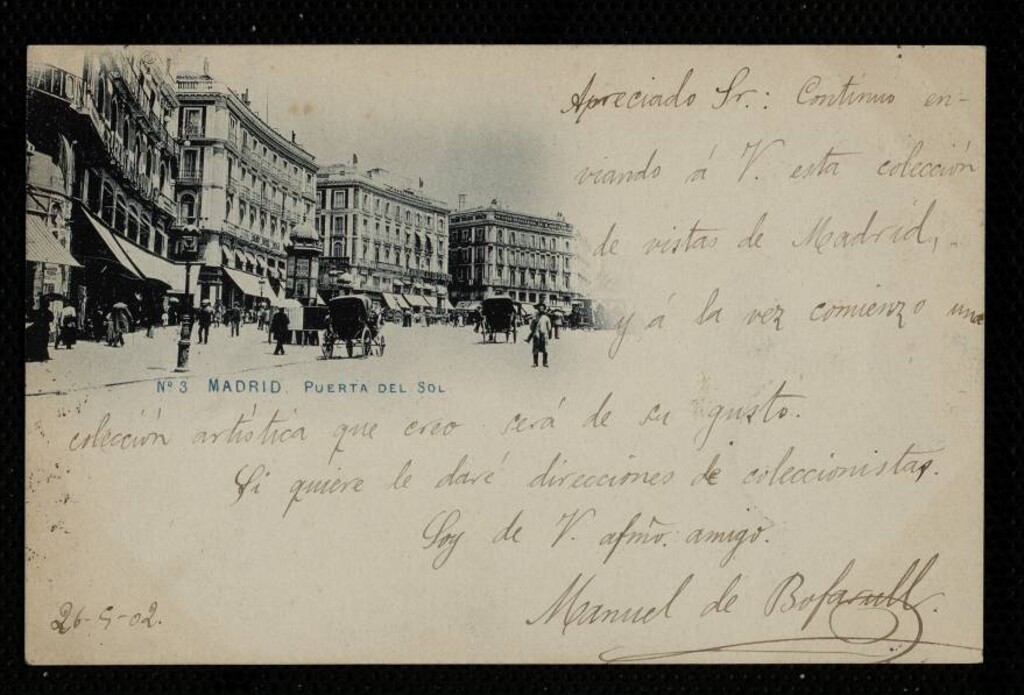 Apreciado Sr.: Continuo en-
viando á V. esta colección
de vistas de Madrid,
y á la vez comienzo una
Nº 3 MADRID. PUERTA DEL SOL
colección artística que creo será de su gusto.
Si quiere le daré direcciónes de coleccionistas.
Soy de V. afmo. amigo.
Manuel de Bofarull.
26-5-02.